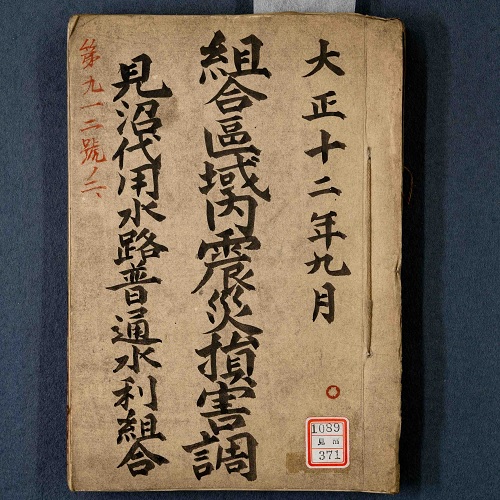 大正十二年九月
組合區域内震災損害調
見沼代用水路普通水利組合
第九一二號ノ二、
1089
見沼
371